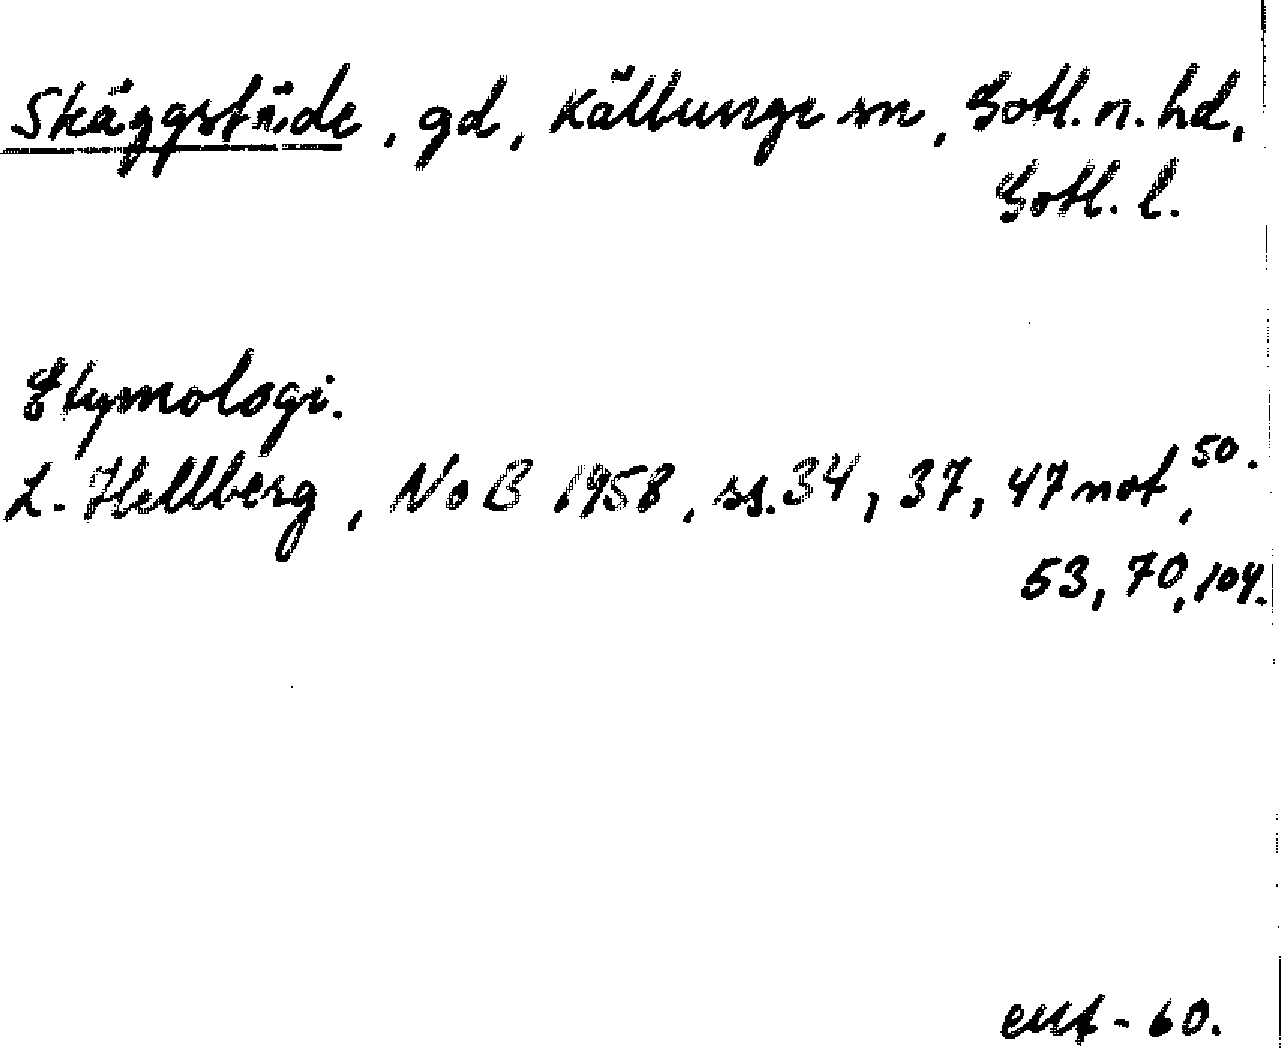 Skäggstäde, gd, Källunge sn, Gotl. n. hd,
Gotl. l.
Etymologi.
L. Hellberg, NoB 1958, ss. 34, 37, 47 not, 50.
53, 70, 104.
- 60.